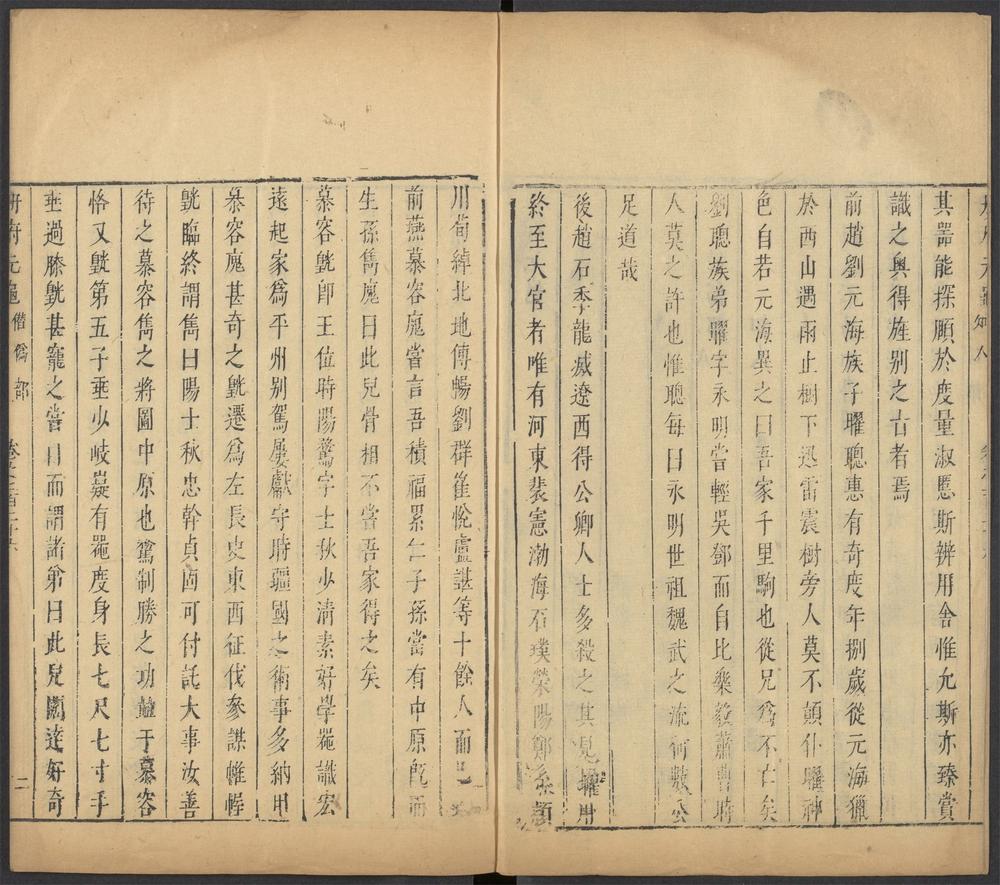 冊府元龜知人
其器能探賾於度量淑慝斯辨用舍惟允斯亦臻賞
識之奧得旌别之古者焉
前趙劉元海族子曜聰惠有奇度年捌歲從元海獵
於西山遇雨止樹下迅雷震樹旁人莫不顛仆曜神
色自若元海異之曰吾家千里駒也從兄爲不亡矣
劉聰族弟曜字永明嘗輕吳鄧而自比樂毅蕭曹時
人莫之許也惟聰每曰永明世祖魏武之流何數公
足道哉
後趙石季龍滅遼西得公卿人士多殺之其見擢用
終至大官者唯有河東裴憲渤海石璞榮陽鄭系潁
川荀綽北地傅暢劉群崔悅盧諶等十餘人而已
前燕慕容廆嘗言吾積福累仁子孫當有中原旣而
生孫雋廆曰此兒骨相不嘗吾家得之矣
慕容皝卽王位時陽鶩字士秋少清素好學器識宏
遠起家爲平州别駕屢獻守時疆國之術事多納用
慕容廆甚奇之皝遷爲左長史東西征伐參謀帷幄
皝臨終謂雋曰陽士秋忠幹貞固可付託大事汝善
待之慕容雋之將圖中原也鶩制勝之功亞于慕容
恪又皝第五子垂少岐嶷有器度身長七尺七寸手
垂過膝皝甚寵之嘗目而謂諸弟曰此兒闊達好奇
冊府元龜 僭僞部 二